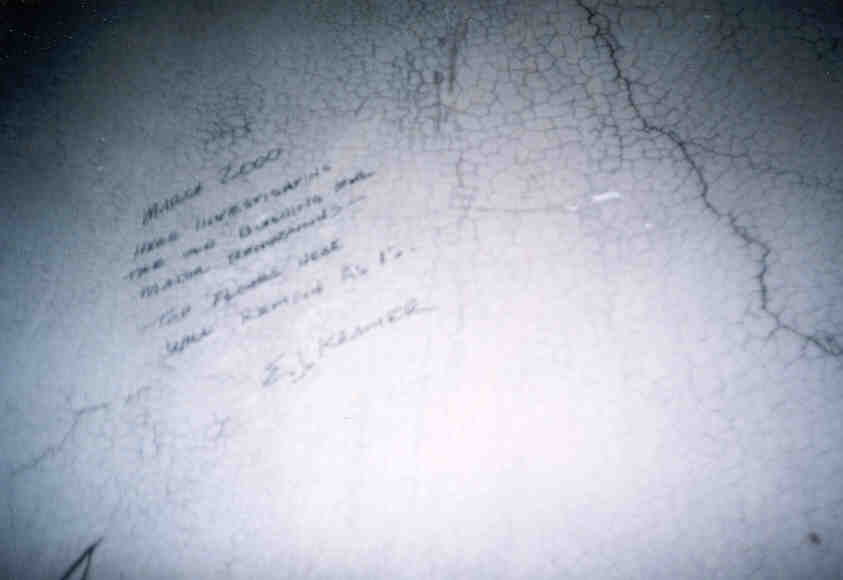 MARCH 2000
HERE INVESTIGATING
THE OLD BUILDING FOR
MAJOR RENOVATIONS —
TOP FLOORS HERE
WILL REMAIN AS IS.
E.J. KRAMER